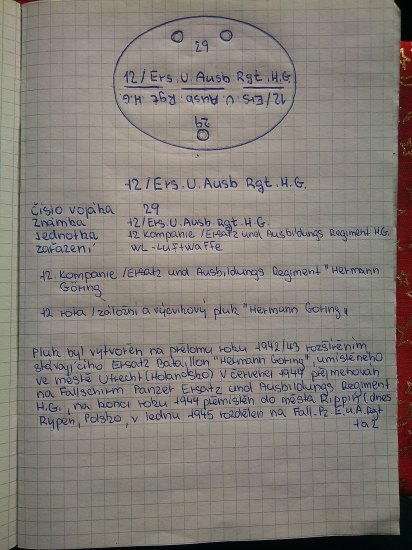 29
12/Ers.U.Ausb Rgt.H.G.
12/Ers.U.Ausb Rgt.H.G.
29
12/Ers.U.Ausb Rgt.H.G.
číslo vojáka 29
známka 12/Ers.U.Ausb Rgt.H.G.
jednotka 12 Kompanie/Ersatz und Ausbildungs Regiment H.G.
zařazení WL-Luftwaffe
12. Kompanie/Ersatz und Ausbildungs Regiment "Hermann
Göring
12 rota/záložní a výcvikový pluk "Hermann Göring"
Pluk byl vytvořen na přelomu roku 1942/43 rozšířením
stávajícího Ersatz Bataillon "Hermann Göring", umístěného
ve městě Utrecht (Holandsko) V červenci 1944 přejmenován
na Fallschirm Panzer Ersatz und Ausbildungs Regiment
H.G., na konci roku 1944 přemístěn do města Rippin (dnes
Rypen, Polsko, v lednu 1945 rozdělen na Fall.Pz.E.u.A.Rgt
1 a 2